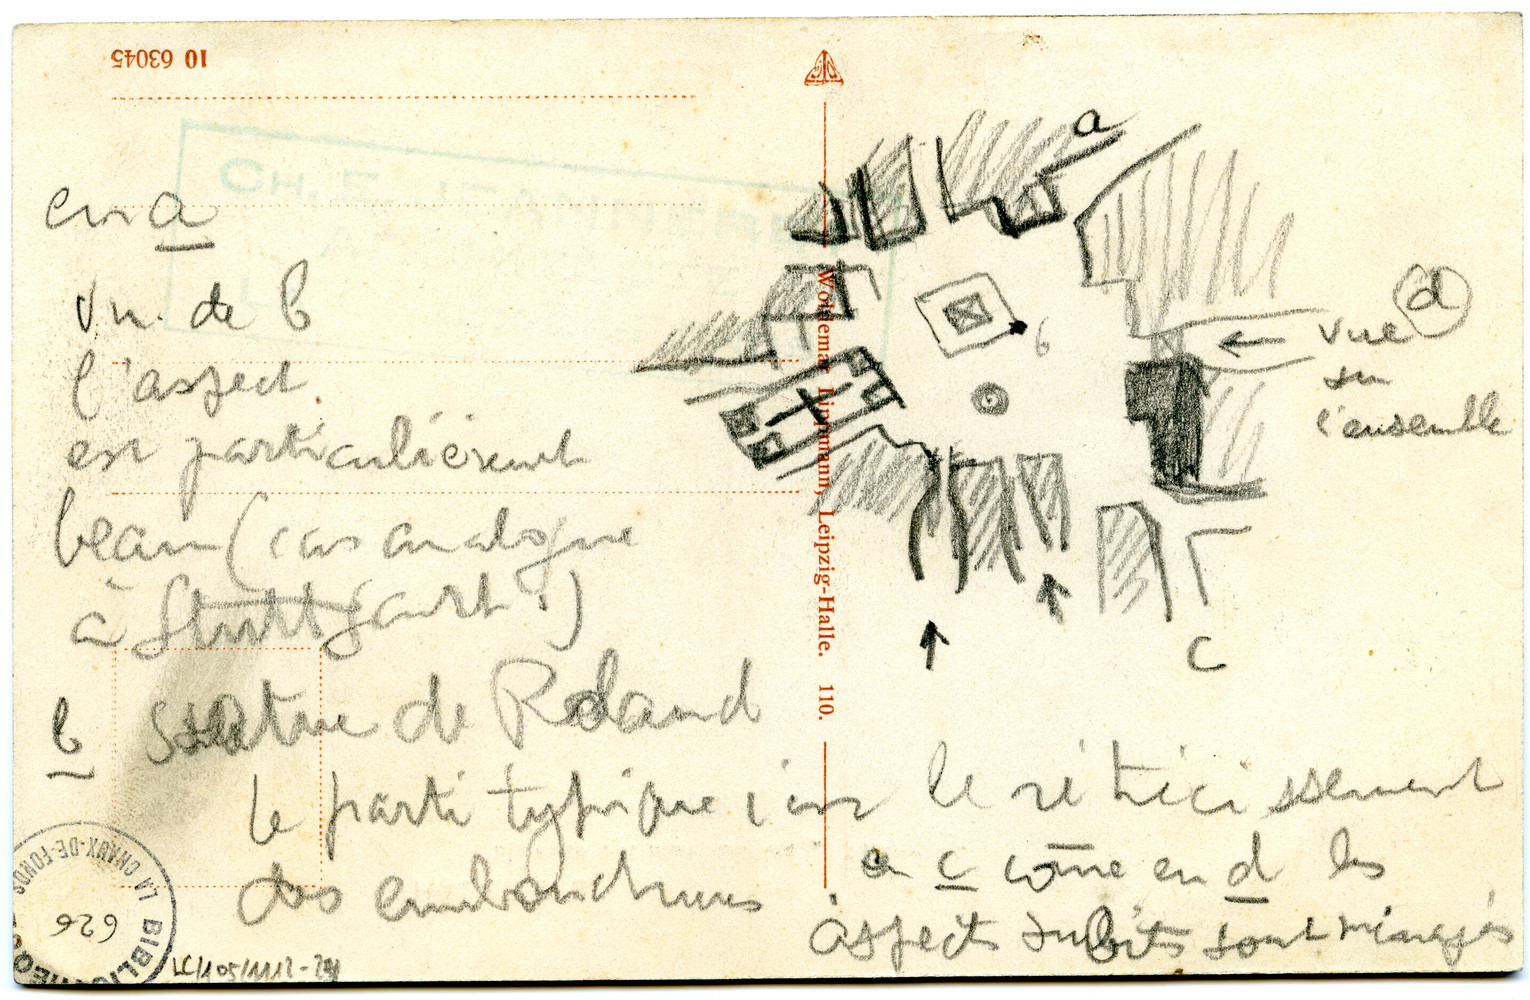 10 63045
CH. E. JEANNERET
en a
Vu de b
l'aspect
est particulièrement
beau (cas analogue
à Stuttgart !)
b statue de Roland
le parti typique c'est le rétrécissement
des embouchures
a c comme en d les
aspects subits sont ménagés
a
b
d
vue
sur
l'ensemble
c
Woldemar Lippmann, Leipzig-Halle. 110.
LA CHAUX-DE-FONDS
BIBLIOTHEQUE
626
LC/105/1112-